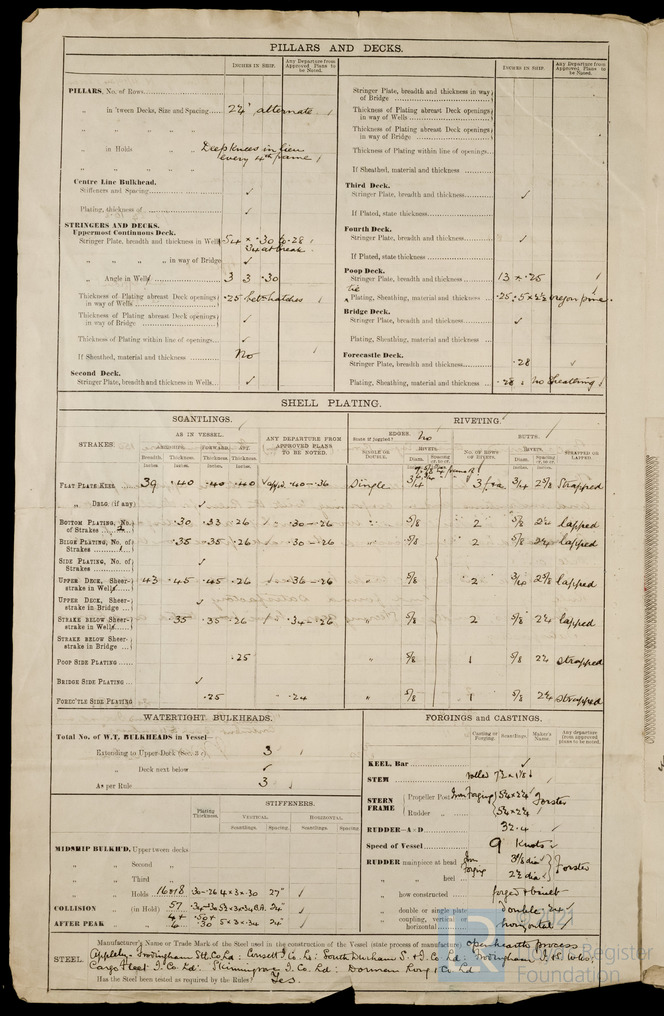 PILLARS AND DECKS.
INCHES IN SHIP. Any Departure from Approved Plans to be Noted.
PILLARS, No. of Rows
„ in 'tween Decks, Size and Spacing 2¼" alternate
„ „ „ „
„ in Holds „ „ Deep knees in lieu
every 4th frame
„ „ „ „
Centre Line Bulkhead.
Stiffeners and Spacing ✓
Plating, thickness of ✓
STRINGERS AND DECKS.
Uppermost Continuous Deck.
Stringer Plate, breadth and thickness in Wells 54 × .30 to .28
at break
„ „ „ „ in way of Bridge ✓
„ Angle in Wells 3 3 .30
Thickness of Plating abreast Deck openings in way of Wells .25 betn hatches
Thickness of Plating abreast Deck openings in way of Bridge ✓
Thickness of Plating within line of openings ✓
If Sheathed, material and thickness No
Second Deck.
Stringer Plate, breadth and thickness in Wells ✓
INCHES IN SHIP. Any Departure from Approved Plans to be Noted.
Stringer Plate, breadth and thickness in way of Bridge
Thickness of Plating abreast Deck openings in way of Wells
Thickness of Plating abreast Deck openings in way of Bridge
Thickness of Plating within line of openings
If Sheathed, material and thickness
Third Deck.
Stringer Plate, breadth and thickness ✓
If Plated, state thickness
Fourth Deck.
Stringer Plate, breadth and thickness ✓
If Plated, state thickness
Poop Deck.
Stringer Plate, breadth and thickness 13 × .25
tie
Plating, Sheathing, material and thickness .25 : 5 × 2½ oregon pine.
Bridge Deck.
Stringer Plate, breadth and thickness ✓
Plating, Sheathing, material and thickness
Forecastle Deck.
Stringer Plate, breadth and thickness .28 ✓
Plating, Sheathing, material and thickness .28 : No sheathing
SHELL PLATING.
SCANTLINGS. RIVETING.
STRAKES. AS IN VESSEL. ANY DEPARTURE FROM APPROVED PLANS TO BE NOTED. EDGES. State if joggled? No BUTTS.
AMIDSHIPS. FORWARD. AFT. SINGLE OR DOUBLE. RIVETS. No. OF ROWS OF RIVETS. RIVETS. STRAPPED OR LAPPED.
Breadth. Thickness. Thickness. Thickness. Diam. Spacing cr. to cr. Diam. Spacing cr. to cr.
Inches. Inches. Inches. Inches. Inches. Inches.
FLAT PLATE KEEL 39 .40 .40 .40 appd. .40-.36 Single 3/4 3/4 2 5/8 Strapped
„ DBLG. (if any) ✓
BOTTOM PLATING, No. of Strakes .30 .33 .26 .30-.26 „ 5/8 2 5/8 2¼ lapped
BILGE PLATING, No. of Strakes 1 .35 .35 .26 .30-.26 „ 5/8 2 5/8 2¼ lapped
SIDE PLATING, No. of Strakes ✓
UPPER DECK, Sheerstrake in Wells 43 .45 .45 .26 .36-.26 „ 5/8 2 3/4 2 5/8 lapped
UPPER DECK, Sheerstrake in Bridge ✓
STRAKE BELOW Sheerstrake in Wells .35 .35 .26 .34-.26 „ 5/8 2 5/8 2¼ lapped
STRAKE BELOW Sheerstrake in Bridge
POOP SIDE PLATING .25 „ 5/8 1 5/8 2¼ strapped
BRIDGE SIDE PLATING ✓
FORECTLE SIDE PLATING .25 .24 „ 5/8 1 5/8 2¼ strapped
WATERTIGHT BULKHEADS.
Total No. of W.T. BULKHEADS in Vessel—
Extending to Upper Deck (Sec. 3 c) 3
„ Deck next below ✓
As per Rule 3
Plating Thickness. STIFFENERS.
VERTICAL. HORIZONTAL.
Scantlings. Spacing. Scantlings. Spacing.
MIDSHIP BULKH'D, Upper 'tween decks
„ „ Second „
„ „ Third „
„ „ Holds 16 & 18 .30-.26 4×3×.30 27"
COLLISION „ (in Hold) 57 24"
AFTER PEAK „ „ .30 5×3×.34 24"
FORGINGS and CASTINGS.
Casting or Forging. Scantlings. Maker's Name. Any departure from approved plans to be noted.
KEEL, Bar ✓
STEM rolled 7½ × 1⅝
STERN FRAME Propeller Post Iron Forging 5¼ × 2¼ Forster
Rudder „ 5¼ × 2¼
RUDDER—A × D 32.4
Speed of Vessel 9 Knots
RUDDER mainpiece at head Iron Forging 3⅞ dia Forster
„ „ heel 2½ dia
„ how constructed forged & built
„ double or single plate double .24
„ coupling, vertical or horizontal horizontal
Manufacturer's Name or Trade Mark of the Steel used in the construction of the Vessel (state process of manufacture) open hearth process
STEEL. Appleby-Frodingham Stl. Co Ld: Consett I. Co. Ld: South Durham S. & I. Co Ld: Frodingham I. & S. Co Ld:
Cargo Fleet I. Co. Ld: Skinningrove I. Co. Ld: Dorman Long & Co Ld
Has the Steel been tested as required by the Rules? Yes.
Register
Foundation